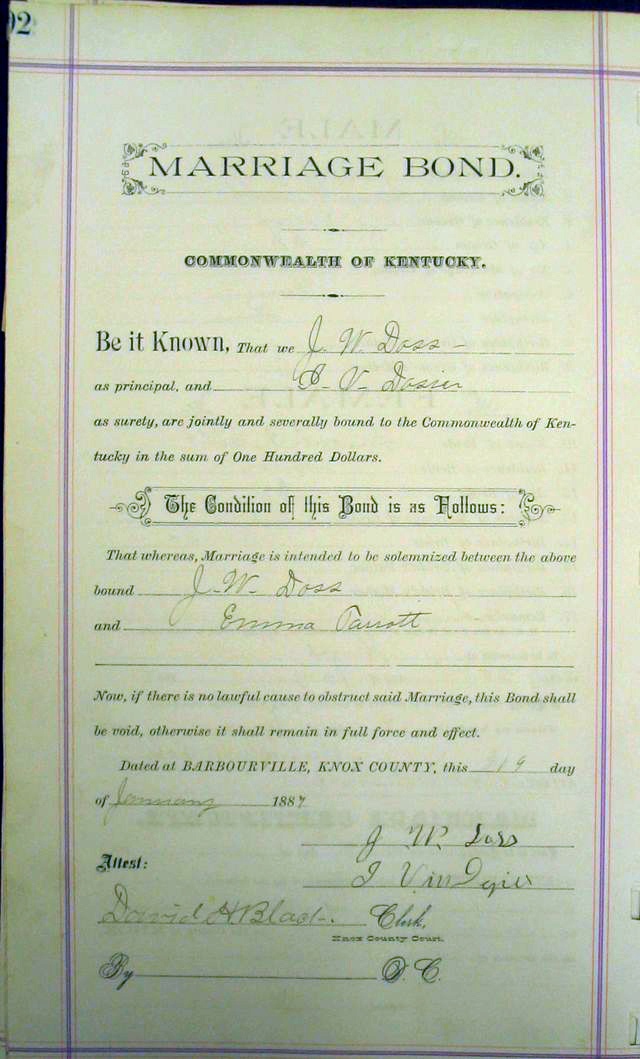 92
MARRIAGE BOND.
COMMONWEALTH OF KENTUCKY.
Be it Known, That we J. W. Doss
as principal, and V. Dosier
as surety, are jointly and severally bound to the Commonwealth of Ken-
tucky in the sum of One Hundred Dollars.
The Condition of this Bond is as Follows:
That whereas, Marriage is intended to be solemnized between the above
bound J. W. Doss
and Emma Parrott
Now, if there is no lawful cause to obstruct said Marriage, this Bond shall
be void, otherwise it shall remain in full force and effect.
Dated at BARBOURVILLE, KNOX COUNTY, this day
of January 1887
J W Doss
Attest:
David H Black. Clerk,
Knox County Court.
By D. C.